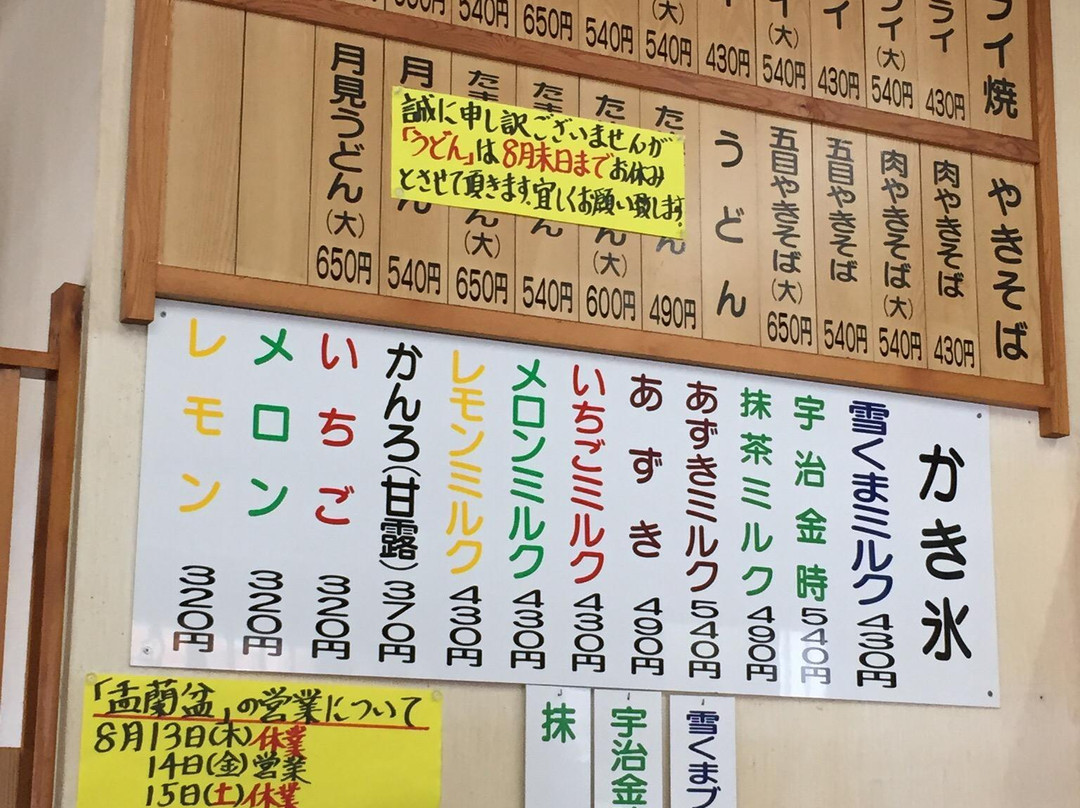 フイ焼
ライ
430円
ライ(大)
540円
イ
430円
イ(大)
540円
430円
(大)
540円
540円
650円
540円
やきそば
肉やきそば 430円
肉やきそば(大) 540円
五目やきそば 540円
五目やきそば(大) 650円
うどん
た
ん 490円
た
ん(大) 600円
たま
ん 540円
たま
ん(大) 650円
月
ん 540円
月見うどん(大) 650円
誠に申し訳ございませんが
「うどん」は8月末日までお休み
とさせて頂きます。宜しくお願い致します。
かき氷
雪くまミルク 430円
宇治金時 540円
抹茶ミルク 490円
あずきミルク 540円
あずき 490円
いちごミルク 430円
メロンミルク 430円
レモンミルク 430円
かんろ(甘露) 370円
いちご 320円
メロン 320円
レモン 320円
雪くまプ
宇治金
抹
「盂蘭盆」の営業について
8月13日(木)休業
14日(金)営業
15日(土)休業